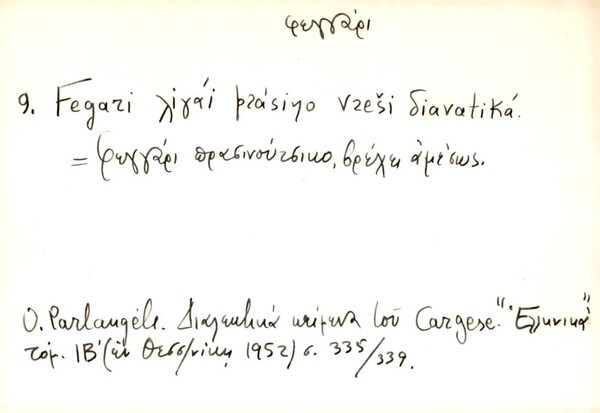 φεγγάρι
9. Fegari λiγái prásiγo vreši diavatiká.
= φεγγάρι πρασινούτσικο, βρέχει ἀμέσως.
O. Parlangèli. Διαλεκτικά κείμενα τοῦ Cargese. "Ἑλληνικά"
τόμ. ΙΒ' (ἐν Θεσσ/νίκῃ 1952) σ. 335/339.